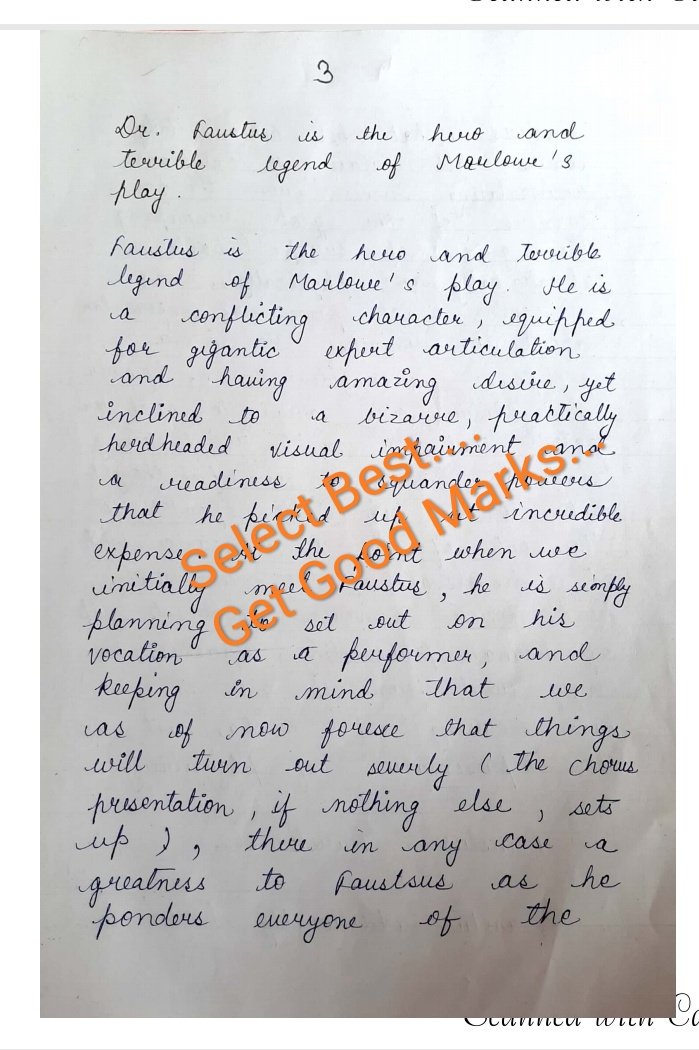 3
Dr. Faustus is the hero and
terrible legend of Marlowe's
play.
Faustus is the hero and terrible
legend of Marlowe's play. He is
a conflicting character, equipped
for gigantic expert articulation
and having amazing desire, yet
inclined to a bizarre, practically
herdheaded visual impairment and
a readiness to squander powers
that he picked up at incredible
expense. At the point when we
initially meet Faustus, he is simply
planning to set out on his
vocation as a performer, and
keeping in mind that we
as of now foresee that things
will turn out severly (the chorus
presentation, if nothing else, sets
up), there in any case a
greatness to Faustsus as he
ponders everyone of the
Select Best....
Get Good Marks...